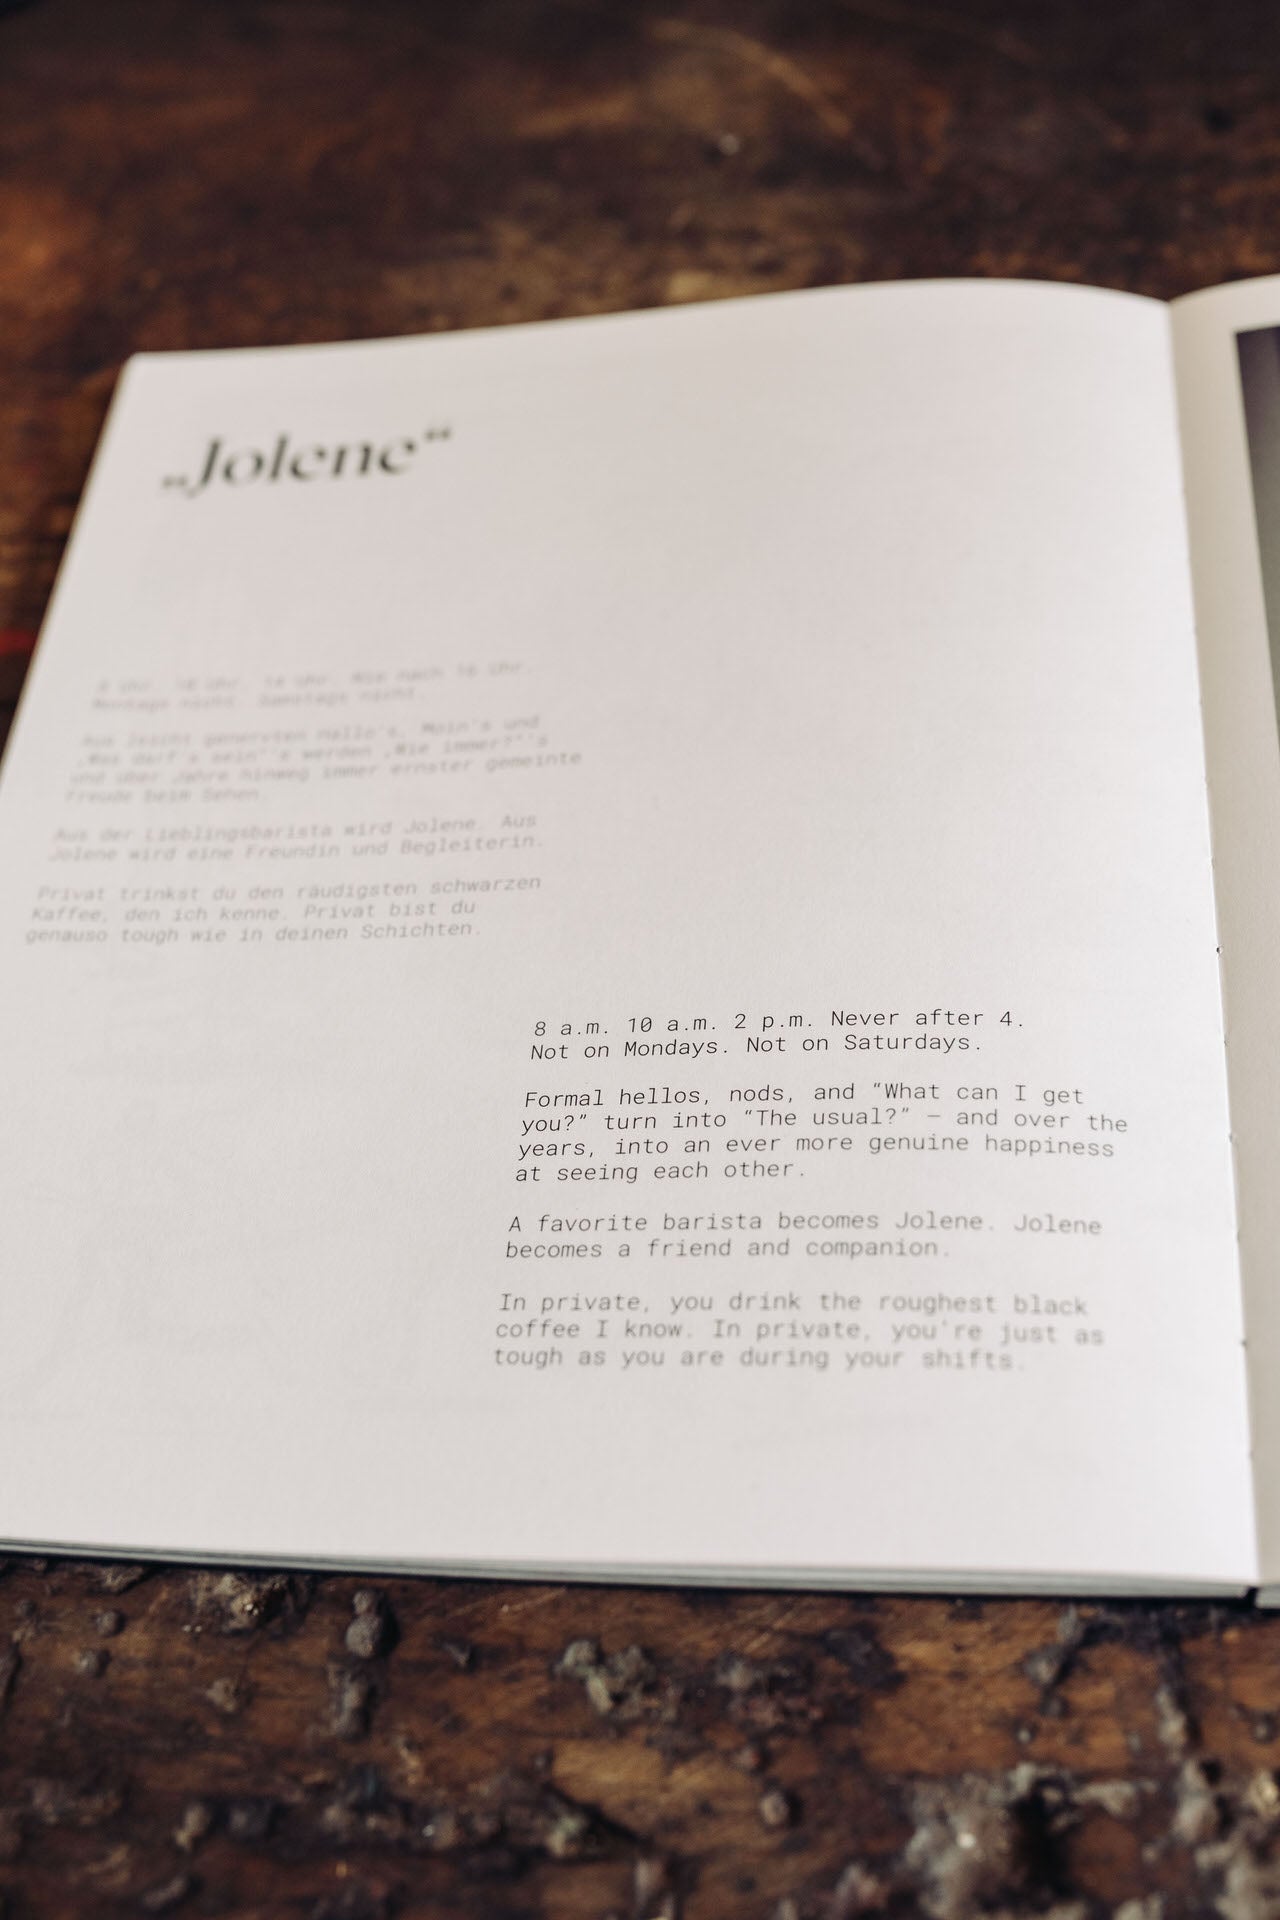 „Jolene“
8 Uhr. 10 Uhr. 14 Uhr. Nie nach 16 Uhr.
Montags nicht. Samstags nicht.
Aus leicht genervten Hallo's, Moin's und
‚Was darf's sein‘'s werden ‚Wie immer?‘'s
und über Jahre hinweg immer ernster gemeinte
Freude beim Sehen.
Aus der Lieblingsbarista wird Jolene. Aus
Jolene wird eine Freundin und Begleiterin.
Privat trinkst du den räudigsten schwarzen
Kaffee, den ich kenne. Privat bist du
genauso tough wie in deinen Schichten.
8 a.m. 10 a.m. 2 p.m. Never after 4.
Not on Mondays. Not on Saturdays.
Formal hellos, nods, and “What can I get
you?” turn into “The usual?” – and over the
years, into an ever more genuine happiness
at seeing each other.
A favorite barista becomes Jolene. Jolene
becomes a friend and companion.
In private, you drink the roughest black
coffee I know. In private, you're just as
tough as you are during your shifts.